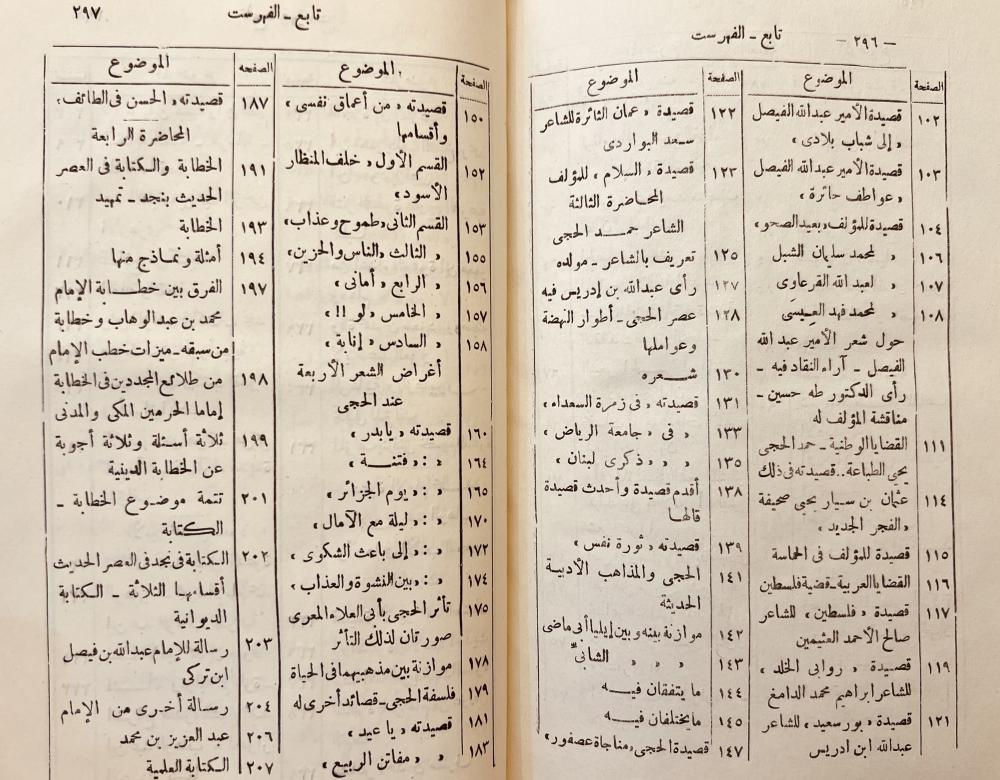 — ٢٩٦ —
تابع ــ الفهرست
الصفحة الموضوع
١٠٢ قصيدة الأمير عبدالله الفيصل
« إلى شباب بلادى »
١٠٣ قصيدة الأمير عبدالله الفيصل
« عواطف حائرة »
١٠٤ قصيدة للمؤلف « بعيد الصحو »
١٠٦ » لمحمد سليمان الشبل
١٠٧ » لعبد الله القرعاوى
١٠٨ » لمحمد فهد العيسى
حول شعر الأمير عبد الله
الفيصل ـ آراء النقاد فيه ـ
رأى الدكتور طه حسين ـ
مناقشة المؤلف له
١١١ القضايا الوطنية ـ حمد الحجى
يحيي الطباعة .. قصيدته فى ذلك
١١٤ عثمان بن سيار يحيى صحيفة
« الفجر الجديد »
١١٥ قصيدة للمؤلف فى الحماسة
١١٦ القضايا العربية ـ قضية فلسطين
١١٧ قصيدة « فلسطين » للشاعر
صالح الأحمد العثيمين
١١٩ قصيدة « روابى الخلد »
للشاعر ابراهيم محمد الدامغ
١٢١ قصيدة « بور سعيد » للشاعر
عبدالله ابن ادريس
الصفحة الموضوع
١٢٢ قصيدة « عمان الثائرة للشاعر
سعد البواردى
١٢٣ قصيدة « السلام » للمؤلف
المحاضرة الثالثة
الشاعر حمد الحجى
١٢٥ تعريف بالشاعر ـ مولده
١٢٧ رأى عبدالله بن إدريس فيه
١٢٨ عصر الحجى ـ أطوار النهضة
وعواملها
١٣٠ شعره
١٣١ قصيدته « فى زمرة السعداء »
١٣٣ » فى « جامعة الرياض »
١٣٥ » » « ذكرى لبنان »
١٣٨ أقدم قصيدة وأحدث قصيدة
قالها
١٣٩ قصيدته « ثورة نفس »
١٤١ الحجى والمذاهب الأدبية
الحديثة
١٤٢ موازنة بينه وبين إيليا أبى ماضى
١٤٣ » » » الشابى
١٤٤ ما يتفقان فيه
١٤٥ ما يختلفان فيه
١٤٧ قصيدة الحجى « مناجاة عصفور »
تابع ــ الفهرست
٢٩٧
الصفحة الموضوع
١٥٠ قصيدته « من أعماق نفسى »
وأقسامها
١٥٢ القسم الأول « خلف المنظار
الأسود »
١٥٣ القسم الثانى « طموح وعذاب »
١٥٥ » الثالث « الناس والحزين »
١٥٦ » الرابع « أمانى »
١٥٧ » الخامس « لو !! »
١٥٨ » السادس « إنابة »
أغراض الشعر الأربعة
عند الحجى
١٦٠ قصيدته « يا بدر »
١٦٤ » : « فتنة »
١٦٥ » : « يوم الجزائر »
١٧٠ » : « ليلة مع الآمال »
١٧٢ » : « إلى باعث الشكوى »
١٧٤ » : « بين النشوة والعذاب »
١٧٥ تأثر الحجى بأبى العلاء المعرى
صورتان لذلك التأثر
١٧٨ موازنة بين مذهبيهما فى الحياة
١٧٩ فلسفة الحجى ـ قصائد أخرى له
١٨١ قصيدته « يا عيد »
١٨٣ » « مفاتن الربيع »
الصفحه الموضوع
١٨٧ قصيدته « الحسن فى الطائف »
المحاضرة الرابعة
١٩١ الخطابة والكتابة فى العصر
الحديث بنجد ـ تمهيد
١٩٣ الخطابة
١٩٤ أمثلة ونماذج منها
١٩٧ الفرق بين خطابة الإمام
محمد بن عبد الوهاب وخطابة
من سبقه ـ ميزات خطب الإمام
١٩٨ من طلائع المجددين فى الخطابة
إماما الحرمين المكى والمدنى
١٩٩ ثلاثة أسئلة وثلاثة أجوبة
عن الخطابة الدينية
٢٠١ تتمة موضوع الخطابة ـ
الكتابة
٢٠٢ الكتابة فى نجد فى العصر الحديث
أقسامها الثلاثة ـ الكتابة
الديوانية
٢٠٣ رسالة للإمام عبدالله بن فيصل
ابن تركى
٢٠٤ رسالة أخرى من الإمام
٢٠٦ عبد العزيز بن محمد
٢٠٧ الكتابة العلمية